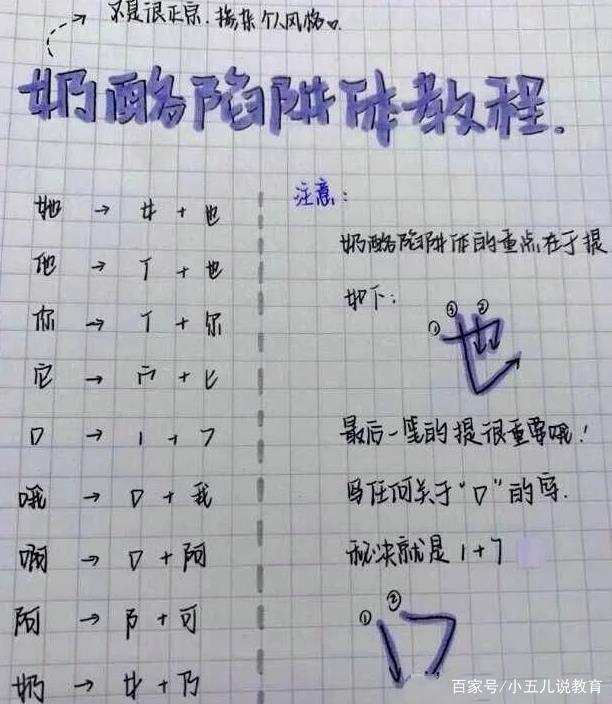 不是很正宗.掺杂个人风格
奶酪陷阱体教程.
她 → 女 + 也
他 → 亻 + 也
你 → 亻 + 尔
它 → 宀 + 匕
口 → 1 + 7
哦 → 口 + 我
啊 → 口 + 阿
阿 → 阝 + 可
奶 → 女 + 乃
注意:
奶酪陷阱体的重点在于提
如下:
① ③ ②
也
最后一笔的提很重要哦!
写任何关于“口”的字.
秘决就是 1 + 7
① ②
口
百家号/小五儿说教育